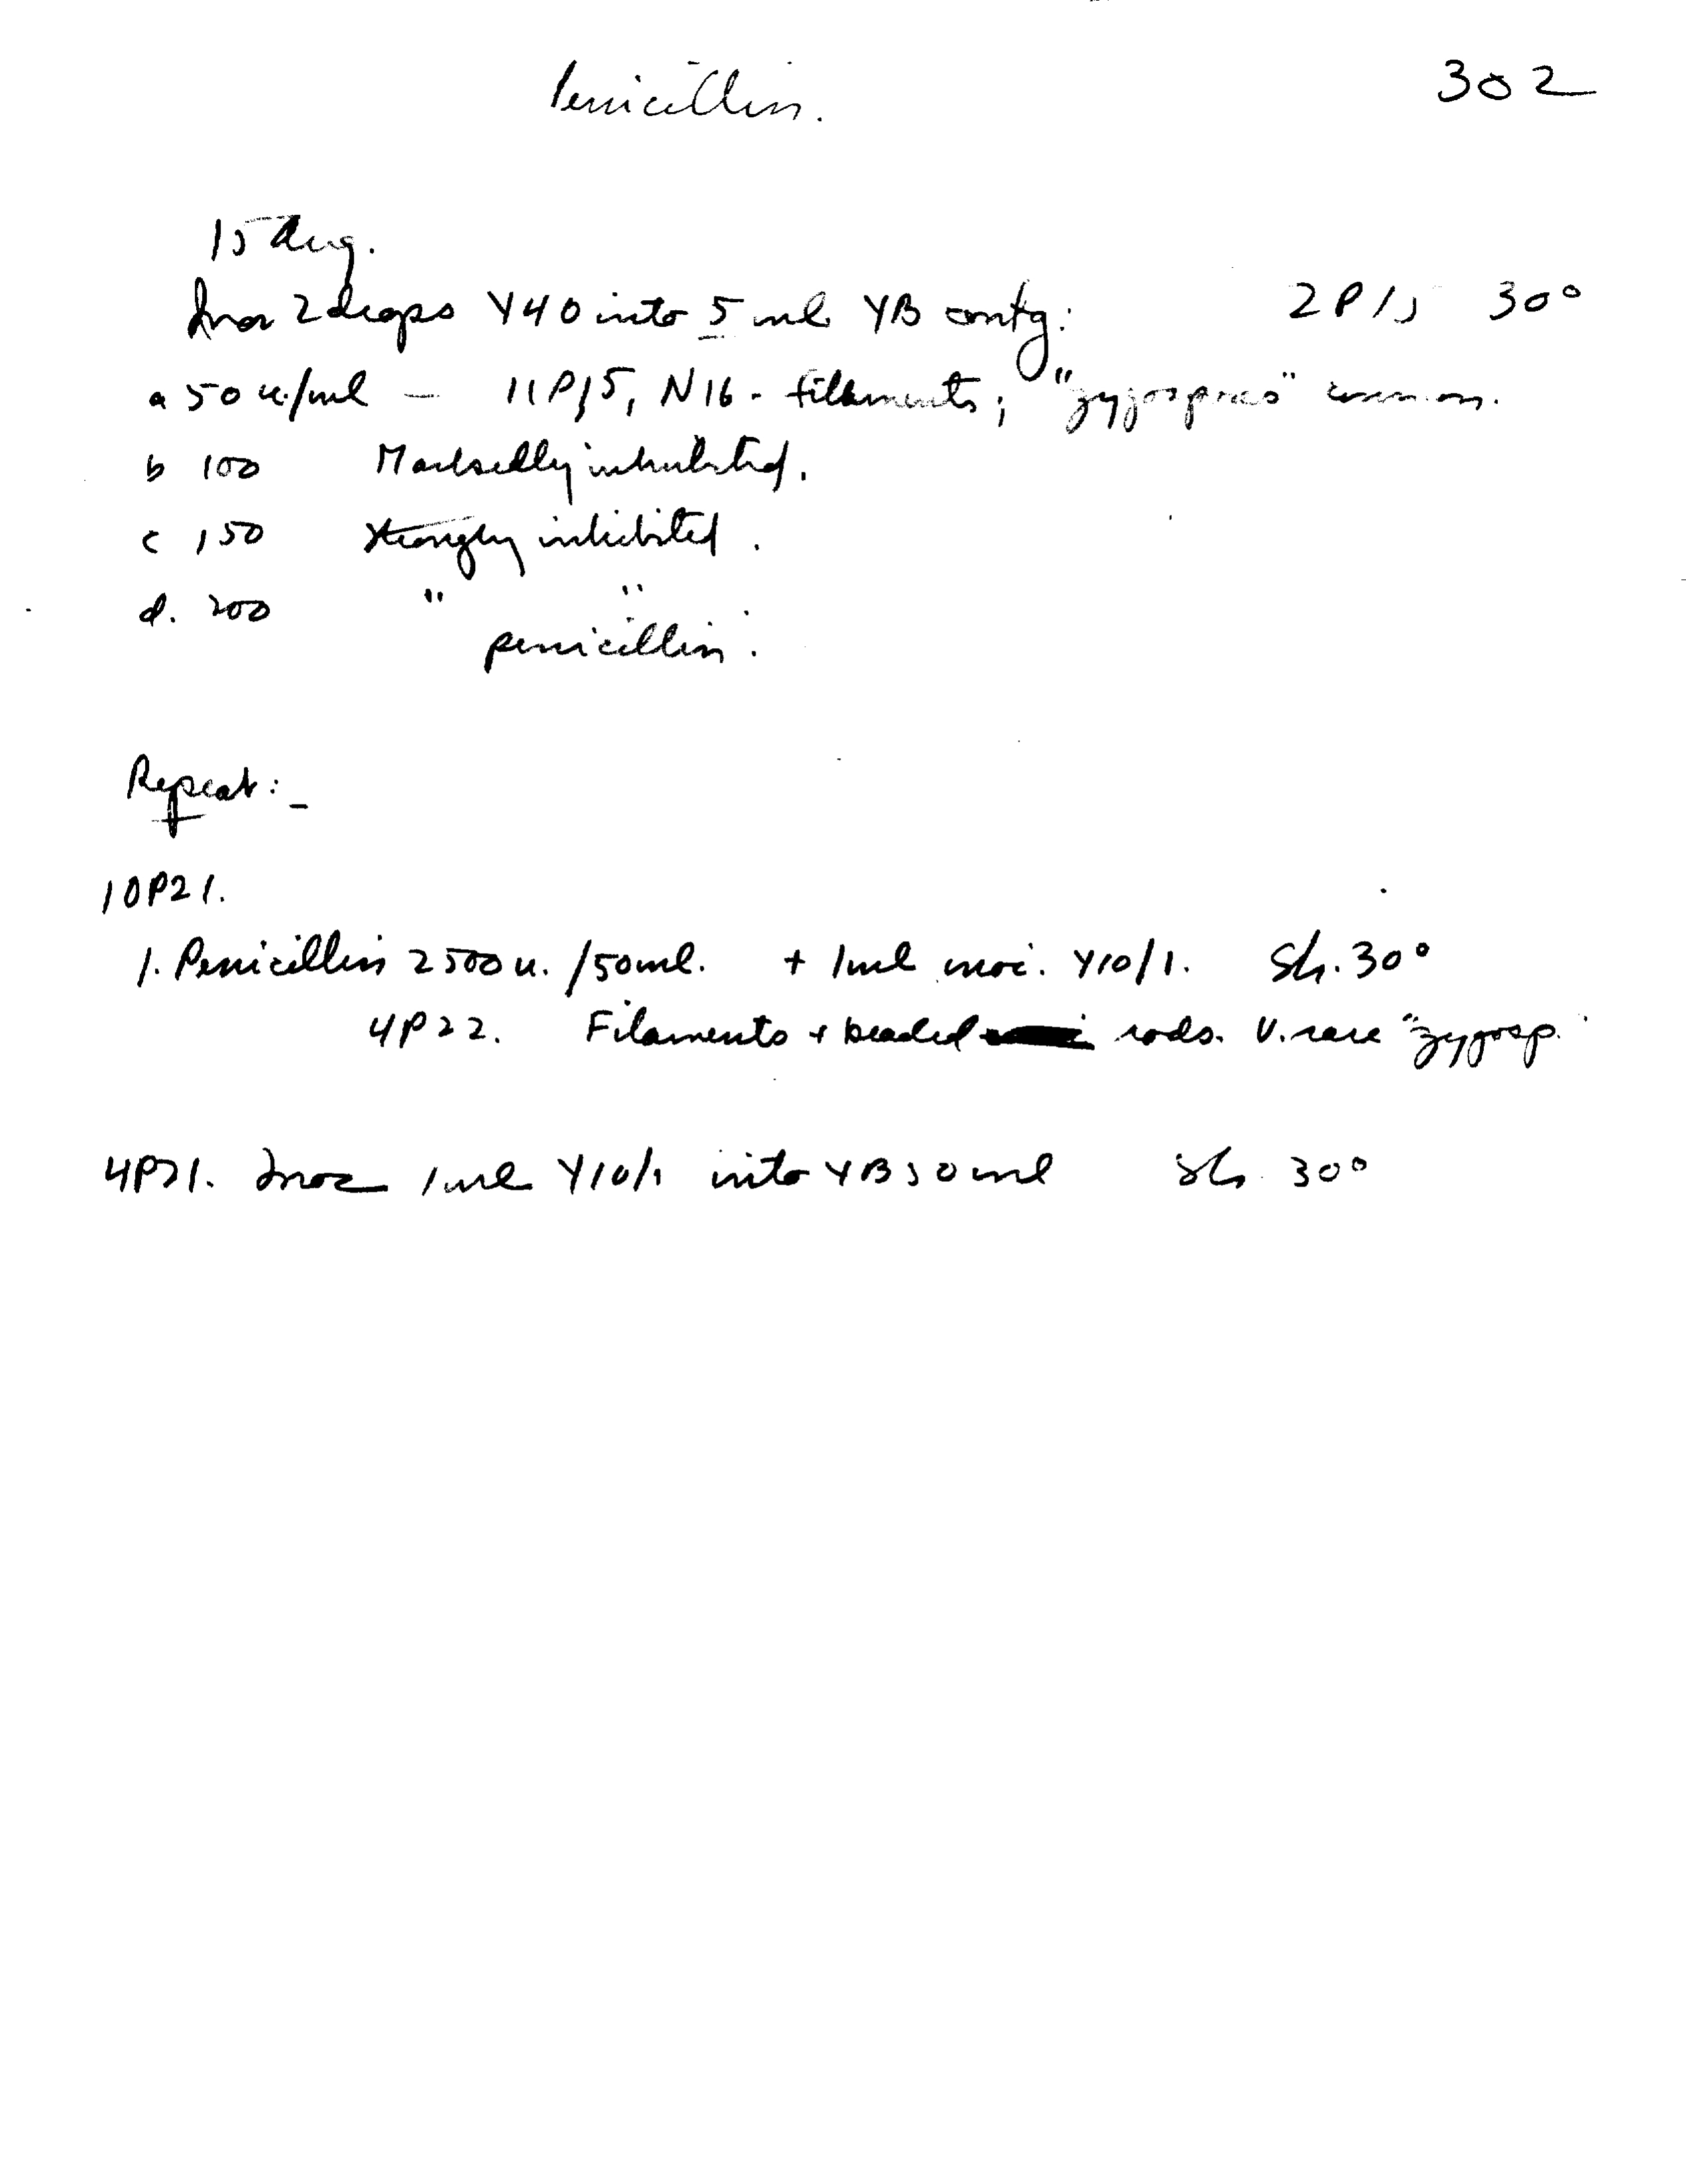 Penicillin. 302
15 Aug.
Inoc 2 drops Y40 into 5 ml YB contg: 2P15 30°
a 50 u/ml — 11P15, N16 - filaments; "zygospores" common.
b 100 Markedly inhibited.
c 150 Strongly inhibited.
d. 200 " "
penicillin.
Repeat:-
10P21.
1. Penicillin 2500 u. /50ml. + 1ml inoc. Y10/1. Sh. 30°
4P22. Filaments + beaded rods. V. rare "zygosp.
4P21. Inoc 1ml Y10/1 into YB 50 ml Sh 30°